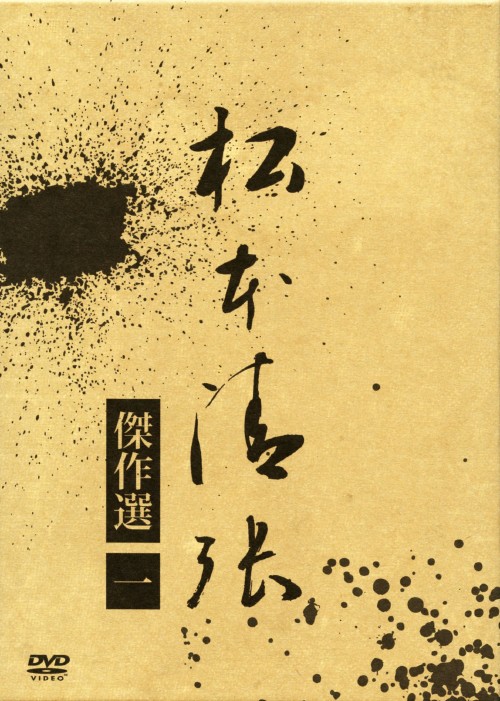 松本清張
傑作選
一
DVD
VIDEO